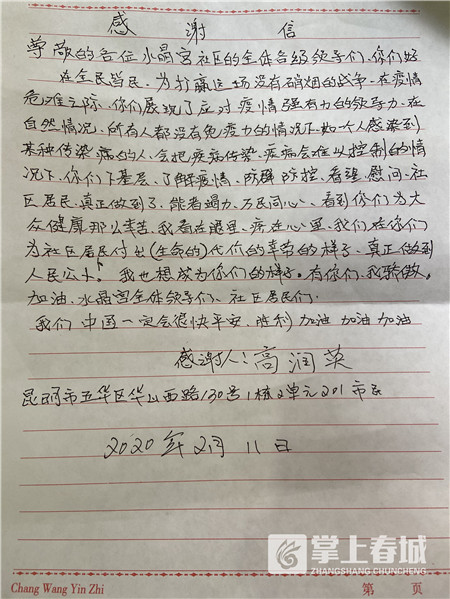 感 谢 信
尊敬的各位水晶宫社区的全体各级领导们、你们好
在全民皆民、为打赢这场没有硝烟的战争、在疫情
危难之际、你们展现了应对疫情强有力的领导力、在
自然情况、所有人都没有免疫力的情况下、如个人感染到
某种传染病的人、会把疾病传染、疾病会难以控制的情
况下、你们下基层、了解疫情、防群防控、看望、慰问、社
区居民、真正做到了、能者竭力、万民同心、看到你们为大
众健康那么辛苦、我看在眼里、疼在心里、我们在你们
为社区居民付出(生命的)代价的辛劳的样子、真正做到
人民公卜。我也想成为你们的样子。有你们、我骄傲。
加油、水晶宫全体领导们、社区居民们.
我们 中国一定会很快平安、胜利 加油 加油 加油
感谢人:高润英
昆明市五华区华山西路130号1栋2单元201 市民
2020年2月11日
掌上春城
ZHANGSHANG CHUNCHENG
Chang Wang Yin Zhi
第 页